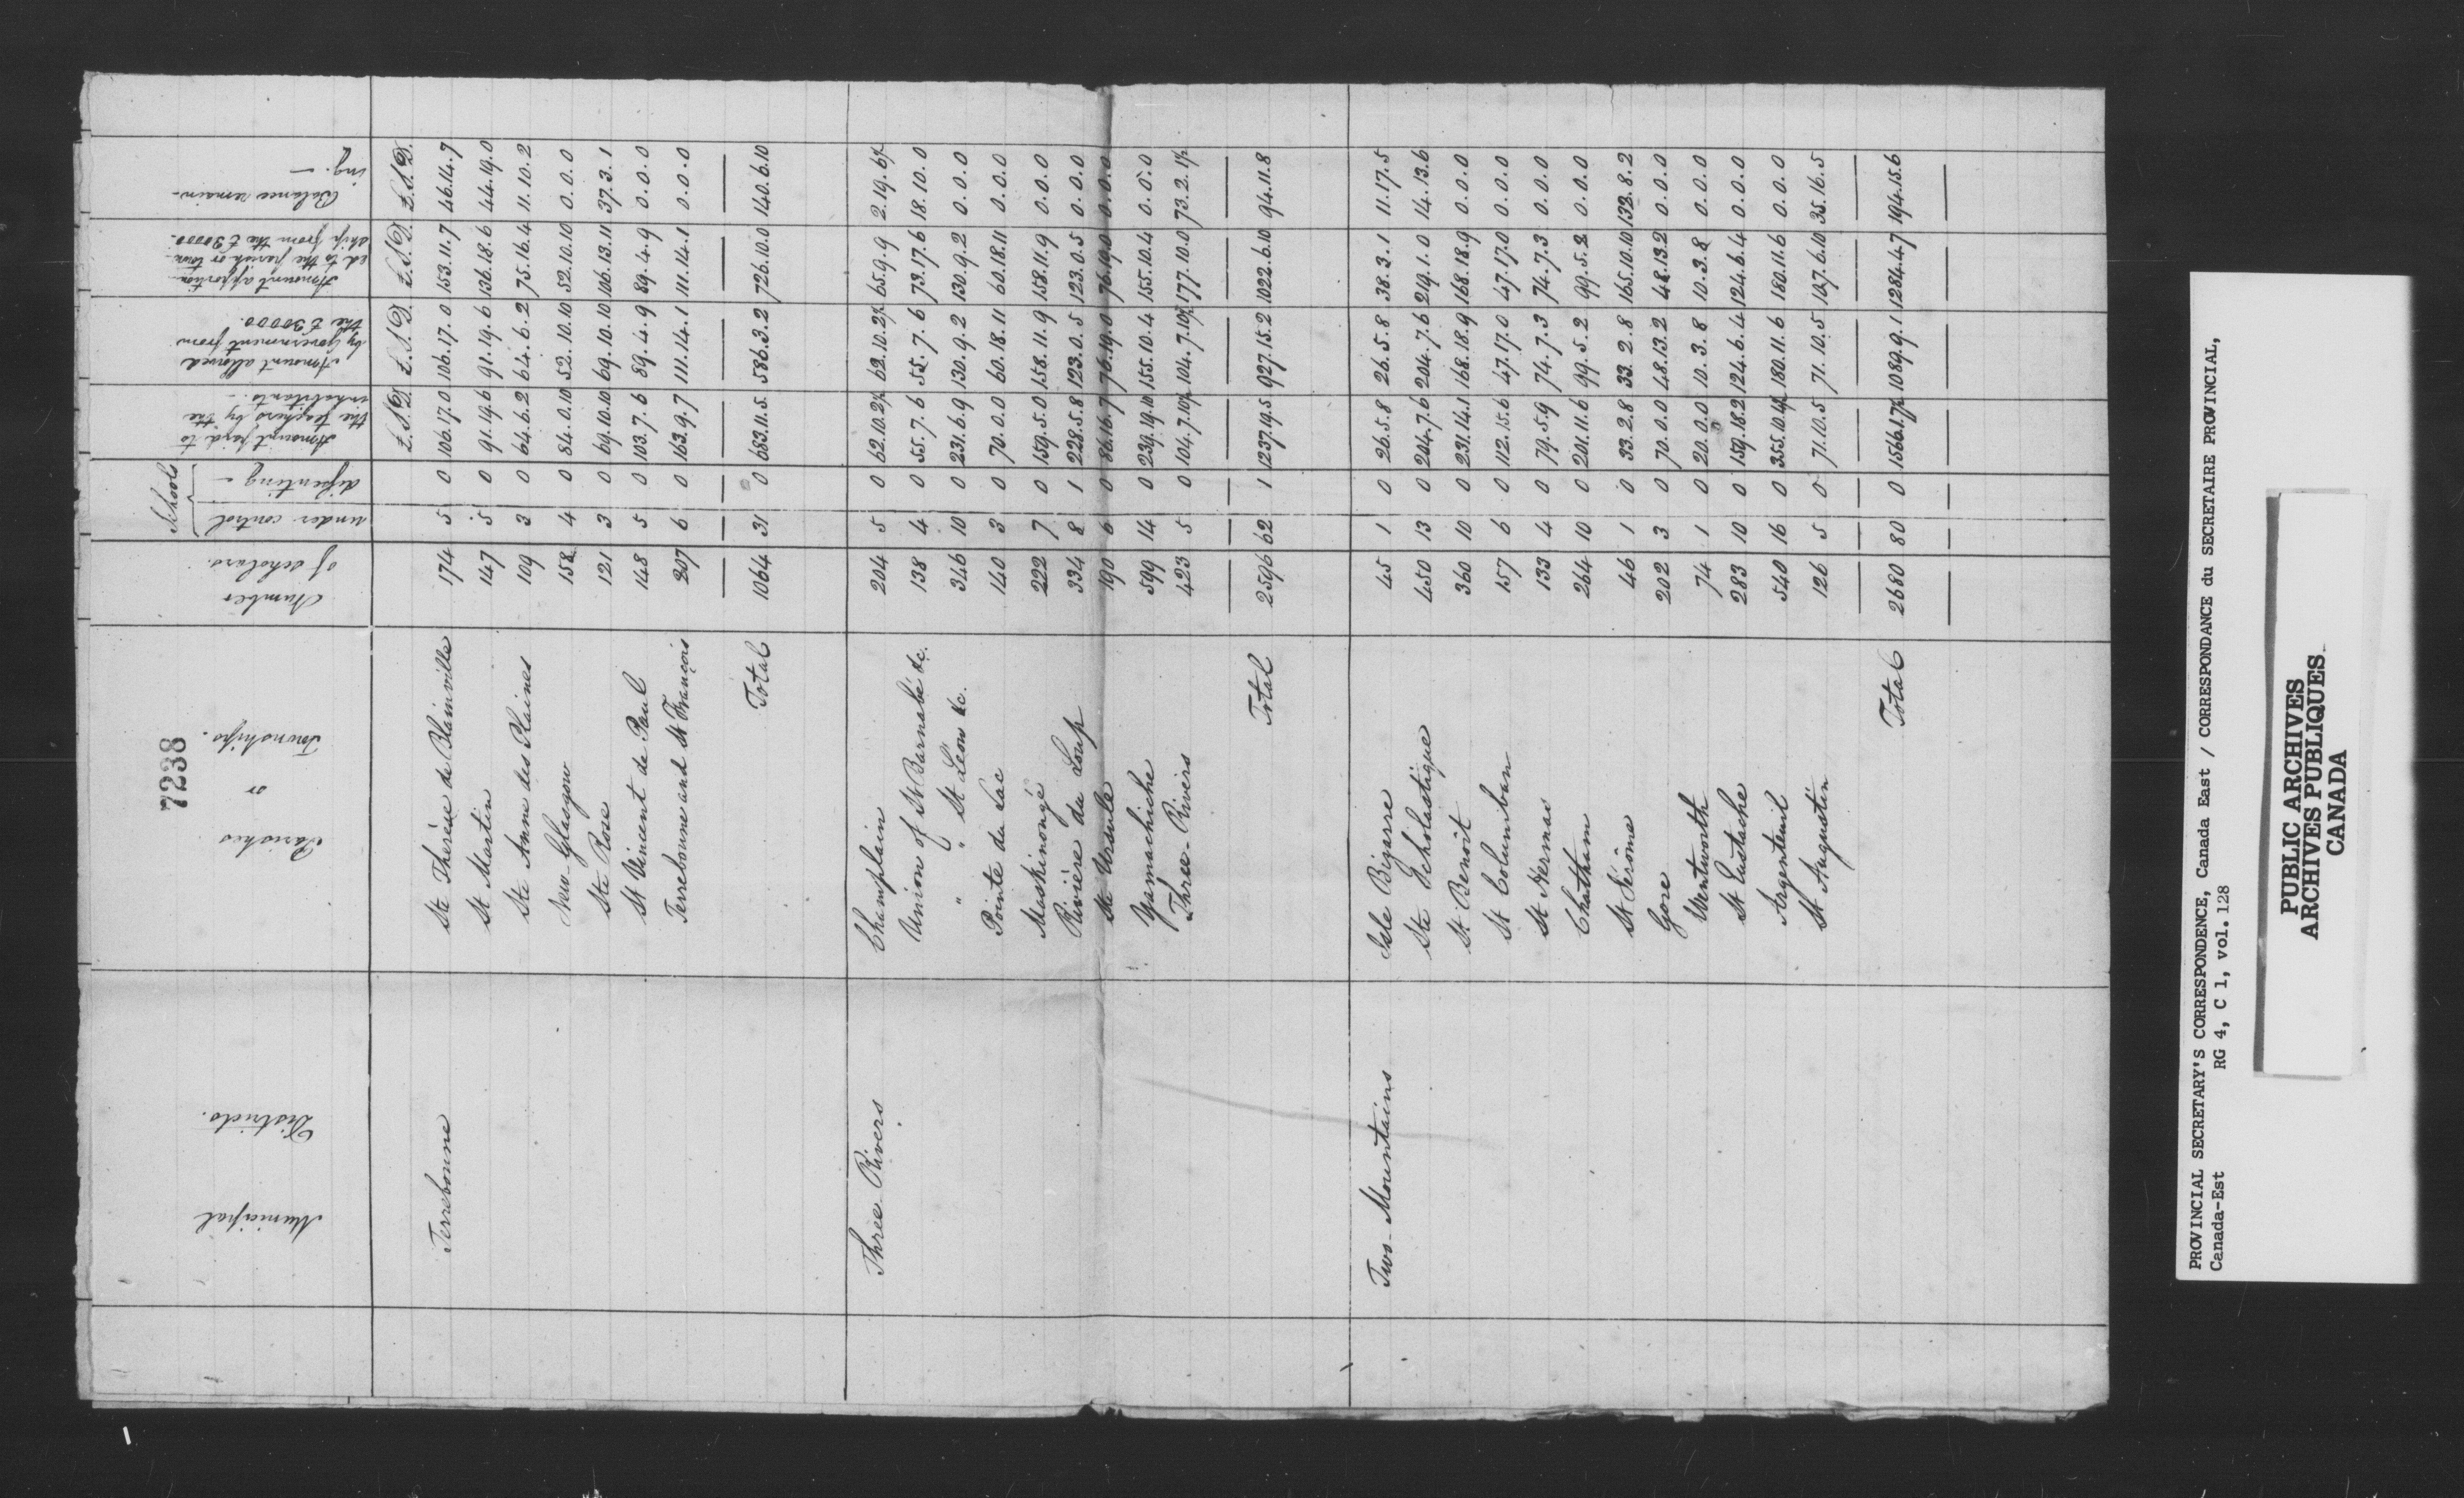 7238
Municipal Districts. Parishes or Townships. Number of scholars. Schools under control disenting - Amount paid to the teachers by the inhabitants. - Amount allowed by Government from the £30000. Amount apportioned to the parish or township from the £30000. Balance remaining. -
£.S.D. £.S.D. £.S.D. £.S.D.
Terrebonne Ste Thérèse de Blainville 174 5 0 106.17.0 106.17.0 153.11.7 46.14.7
St Martin 147 5 0 91.19.6 91.19.6 136.18.6 44.19.0
Ste Anne des Plaines 109 3 0 64.6.2 64.6.2 75.16.4 11.10.2
New-Glasgow 158 4 0 84.0.10 52.10.10 52.10.10 0.0.0
Ste Rose 121 3 0 69.10.10 69.10.10 106.13.11 37.3.1
St Vincent de Paul 148 5 0 103.7.6 89.4.9 89.4.9 0.0.0
Terrebonne and St François 207 6 0 163.9.7 111.14.1 111.14.1 0.0.0
Total 1064 31 0 683.11.5 586.3.2 726.10.0 140.6.10
Three-Rivers Champlain 204 5 0 62.10.2½ 62.10.2½ 65.9.9 2.19.6½
Union of St Barnabé &c. 138 4 0 55.7.6 55.7.6 73.17.6 18.10.0
" " St Léon &c. 346 10 0 231.6.9 130.9.2 130.9.2 0.0.0
Pointe du Lac 140 3 0 70.0.0 60.18.11 60.18.11 0.0.0
Maskinongé 222 7 0 159.5.0 158.11.9 158.11.9 0.0.0
Rivière du Loup 334 8 1 228.5.8 123.0.5 123.0.5 0.0.0
Ste Ursule 190 6 0 86.16.7 76.19.0 76.19.0 0.0.0
Yamachiche 599 14 0 239.19.10 155.10.4 155.10.4 0.0.0
Three-Rivers 423 5 0 104.7.10½ 104.7.10½ 177.10.0 73.2.1½
Total 2596 62 1 1237.19.5 927.15.2 1022.6.10 94.11.8
Two-Mountains Isle Bizarre 45 1 0 26.5.8 26.5.8 38.3.1 11.17.5
Ste Scholastique 450 13 0 204.7.6 204.7.6 219.1.0 14.13.6
St Benoît 360 10 0 231.14.1 168.18.9 168.18.9 0.0.0
St Columban 157 6 0 112.15.6 47.17.0 47.17.0 0.0.0
St Hermas 133 4 0 79.5.9 74.7.3 74.7.3 0.0.0
Chatham 264 10 0 201.11.6 99.5.2 99.5.2 0.0.0
St Jérôme 46 1 0 33.2.8 33.2.8 165.10.10 132.8.2
Gore 202 3 0 70.0.0 48.13.2 48.13.2 0.0.0
Wentworth 74 1 0 20.0.0 10.3.8 10.3.8 0.0.0
St Eustache 283 10 0 159.18.2 124.6.4 124.6.4 0.0.0
Argenteuil 540 16 0 355.10.4½ 180.11.6 180.11.6 0.0.0
St Augustin 126 5 0 71.10.5 71.10.5 107.6.10 35.16.5
Total 2680 80 0 1566.1.7½ 1089.9.1 1284.4.7 194.15.6
PROVINCIAL SECRETARY'S CORRESPONDENCE, Canada East / CORRESPONDANCE du SECRETAIRE PROVINCIAL,
Canada-Est RG 4, C 1, vol. 128
PUBLIC ARCHIVES
ARCHIVES PUBLIQUES
CANADA